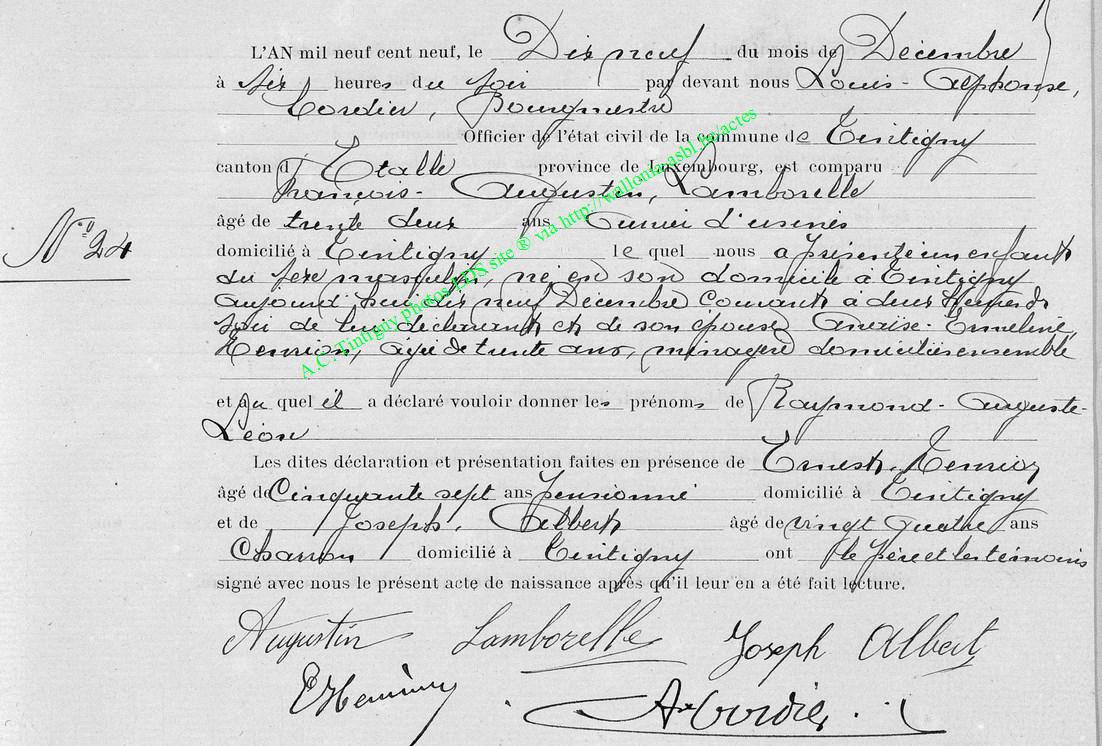 L'AN mil neuf cent neuf, le Dix neuf du mois de Décembre
à six heures du soir par devant nous Louis-Alphonse,
Cordier, Bourgmestre
Officier de l'état civil de la commune de Tintigny
canton d'Etalle province de Luxembourg, est comparu
François-Augustin, Lamborelle
âgé de trente deux ans Ouvrier d'usines
domicilié à Tintigny lequel nous a présenté un enfant
N° 24
du sexe masculin, né en son domicile à Tintigny
aujourd'hui dix neuf Décembre courant à deux heures du
soir de lui déclarant et de son épouse Anaïse-Ermeline,
Henrion, âgée de trente ans, ménagère domiciliés ensemble
et au quel il a déclaré vouloir donner les prénoms de Raymond-Auguste-
Léon
Les dites déclaration et présentation faites en présence de Ernest, Henrion
âgé de Cinquante sept ans pensionné domicilié à Tintigny
et de Joseph, Albert âgé de vingt quatre ans
Charron domicilié à Tintigny ont le père et les témoins
signé avec nous le présent acte de naissance après qu'il leur en a été fait lecture.
Augustin Lamborelle Joseph Albert
E Henrion Aˢᵉ Cordier
A.C. Tintigny photos EDS site ® via http://walloniaasbl.be/actes